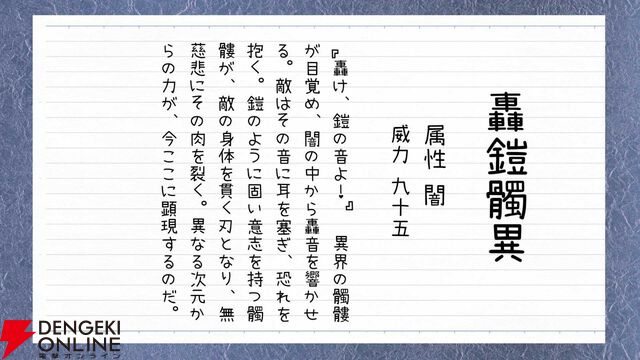 轟鎧髑異
属性 闇
威力 九十五
『轟け、鎧の音よ!』 異界の髑髏
が目覚め、闇の中から轟音を響かせ
る。敵はその音に耳を塞ぎ、恐れを
抱く。鎧のように固い意志を持つ髑
髏が、敵の身体を貫く刃となり、無
慈悲にその肉を裂く。異なる次元か
らの力が、今ここに顕現するのだ。
DENGEKI
ONLINE
電撃オンライン